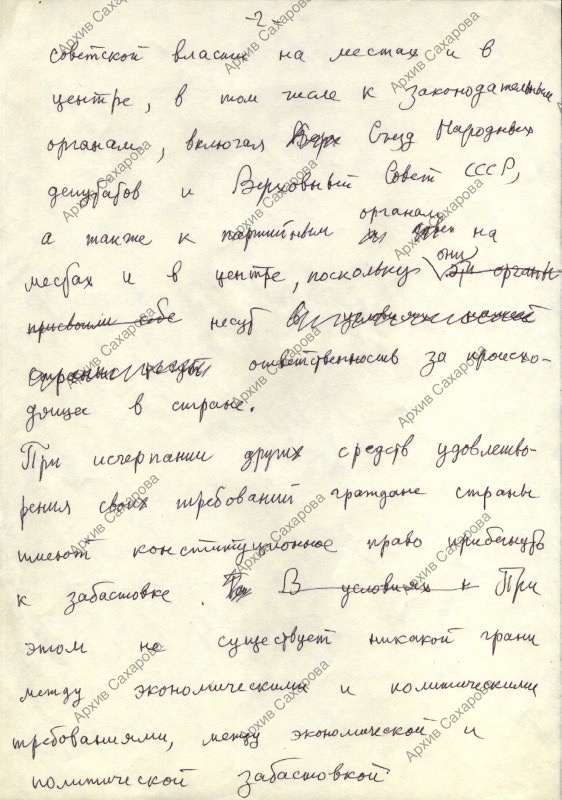 -2-
советской власти на местах и в
центре, в том числе к законодательным
органам, включая Верх Съезд Народных
депутатов и Верховный Совет СССР,
а также к партийным органам на
местах и в центре, поскольку они эти органы
присвоили себе несут в условиях нашей
страны несут ответственность за происхо-
дящее в стране.
При исчерпании других средств удовлетво-
рения своих требований граждане страны
имеют конституционное право прибегнуть
к забастовке. В условиях При
этом не существует никакой грани
между экономическими и политическими
требованиями, между экономической и
политической забастовкой
Архив Сахарова